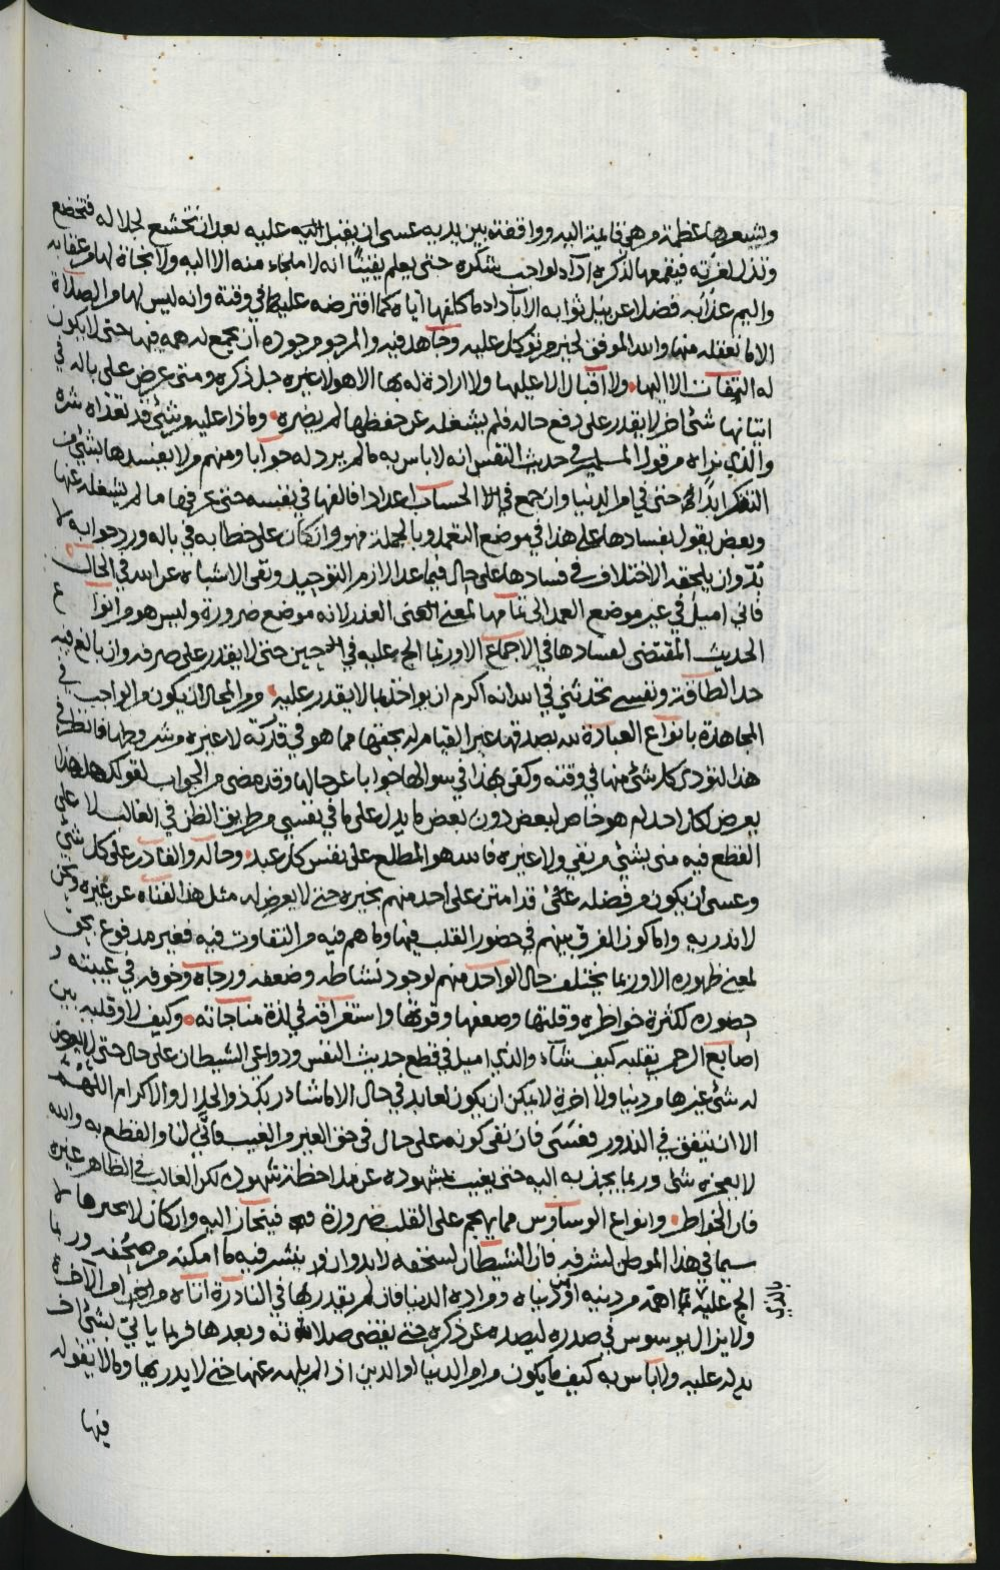 ويشعرها عظمة من هي قايمة اليه وواقفة بين يديه عسى ان يقبل الله عليه بعد ان تخشع لجلاله فتخضع
وتذل لعزته فيقمعها لذكره اداء لواجب شكره حتى يعلم يقينا انه لا ملجاء منه الا اليه ولا نجاة لها من عقابه
واليم عذابه فضلا عن نيل ثوابه الا باداء ما كلفها اياه كما افترضه عليها في وقته وانه ليس لها من الصلاة
الا ما تعقله منها والله الموفق لخير من توكل عليه وجاهد فيه والمرجو من جوده ان يجمع له همه فيها حتى لا يكون
له التفات الا اليها ولا اقبال الا عليها ولا ارادة له بها الا هو لا غيره جل ذكره ومتى عرض على باله في
اتيانها شئ اخر لا يقدر على دفع حاله فلم يشغله عن حفظها لم يضره وماذا عليه من شئ قد تعذاه شره
والذي نراه من قول المسلمين في حديث النفس انه لا باس به ما لم يرد له جوابا ومنهم من لا يفسدها بشئ من
التفكر ابدا حتى في امر الدنيا وان جمع في الحساب اعدادا فالفها في نفسه حتى عرفها ما لم يشغله عنها
وبعض يقول بفسادها على هذا في موضع التعمد وبالجملة فهو وان كان على خطابه في باله ورد جوابه لا
بد وان يلحقه الاختلاف في فسادها على حال فيما عدا لازم التوحيد ونفى الاشباه عن الله في الحال
فاني اميل في غير موضع العمد الى تمامها لمعنى العذر لانه موضع ضرورة وليس هو من انواع
الحديث المقتضي لفسادها في الاجماع الا وربما الح عليه في حين حتى لا يقدر على صرفه وان بالغ فيه
حد الطاقة ونفسي تحدثني في الله انه اكرم ان يواخذ بما لا يقدر عليه ومن المحال ان يكون والواجب في
المجاهدة بانواع العبادة لله بصدقها غير القيام له بحقها مما هو في قدرته لا غيره من شروطها فانظر في
هذا لتؤدي كل شئ منها في وقته وكفى بهذا في سوالها جوابا عن حالها وقد مضى من الجواب لقولك هل هذا
يعرض لكل احد ام هو خاص لبعض دون بعض ما يدل على ما في نفسي من طريق الظن في الغالب لا على
القطع فيه مني بشئ من نفي ولا غيره فالله هو المطلع على نفس كل عبد وحاله والقادر على كل شئ
وعسى ان يكون من فضله قد امتن على احد منهم بخيره حتى لا يعرض له مثل هذا لفناه عن غيره ونحن
لا ندريه واما كون الفرق بينهم في حضور القلب فيها وما هم فيه من التفاوت فيه فغير مدفوع بحق
لمعنى ظهوره الا وربما يختلف حال الواحد منهم لوجود نشاطه وضعفه ورجاه وخوفه في غيبته و
حضوره لكثرة خواطره وقلتها وضعفها وقوتها واستغراقه في لذة مناجاته وكيف لا وقلبه بين
اصابع الرحمن يقلبه كيف شاء والذي اميل في قطع حديث النفس ودواعى الشيطان على حال حتى لا يعرض
له شئ غيرها من دنيا ولا اخرة لا يمكن ان يكون لعابد في حال الا ما شا ربك ذو الجلال والاكرام اللهم
الا ان يتفق في الندور فعسى فان نفى كونه على حال في حق الغير من الغيب فانى لنا والقطع به والله
لا يعجزه شئ وربما يجذبه اليه حتى يغيب بشهوده عن ملاحظة شهوده لكن الغالب في الظاهر غيره
فان الخواطر وانواع الوساوس مما يهجم على القلب ضرورة فيتحاز اليه وان كان لا يجيزها لا
سيما في هذا الموطن لشرفه فان الشيطان لسخفه لا بد وان ينشر فيه ما امكنه من صحفه وربما
الح عليه بما اهمه من دينه او من دنياه ومراده الدنيا فان لم يقدر بها في النادرة اتاه من امر الاخرة
بالذي
ولا يزال يوسوس في صدره ليصده عن ذكره حتى يقضى صلاته وبعدها فربما ياتي بشئ اخر
يدله عليه ولا باس به كيف ما يكون من امر الدنيا او الدين اذا لم يلهه عنها حتى لا يدر بها وما لا يقوله
فيها